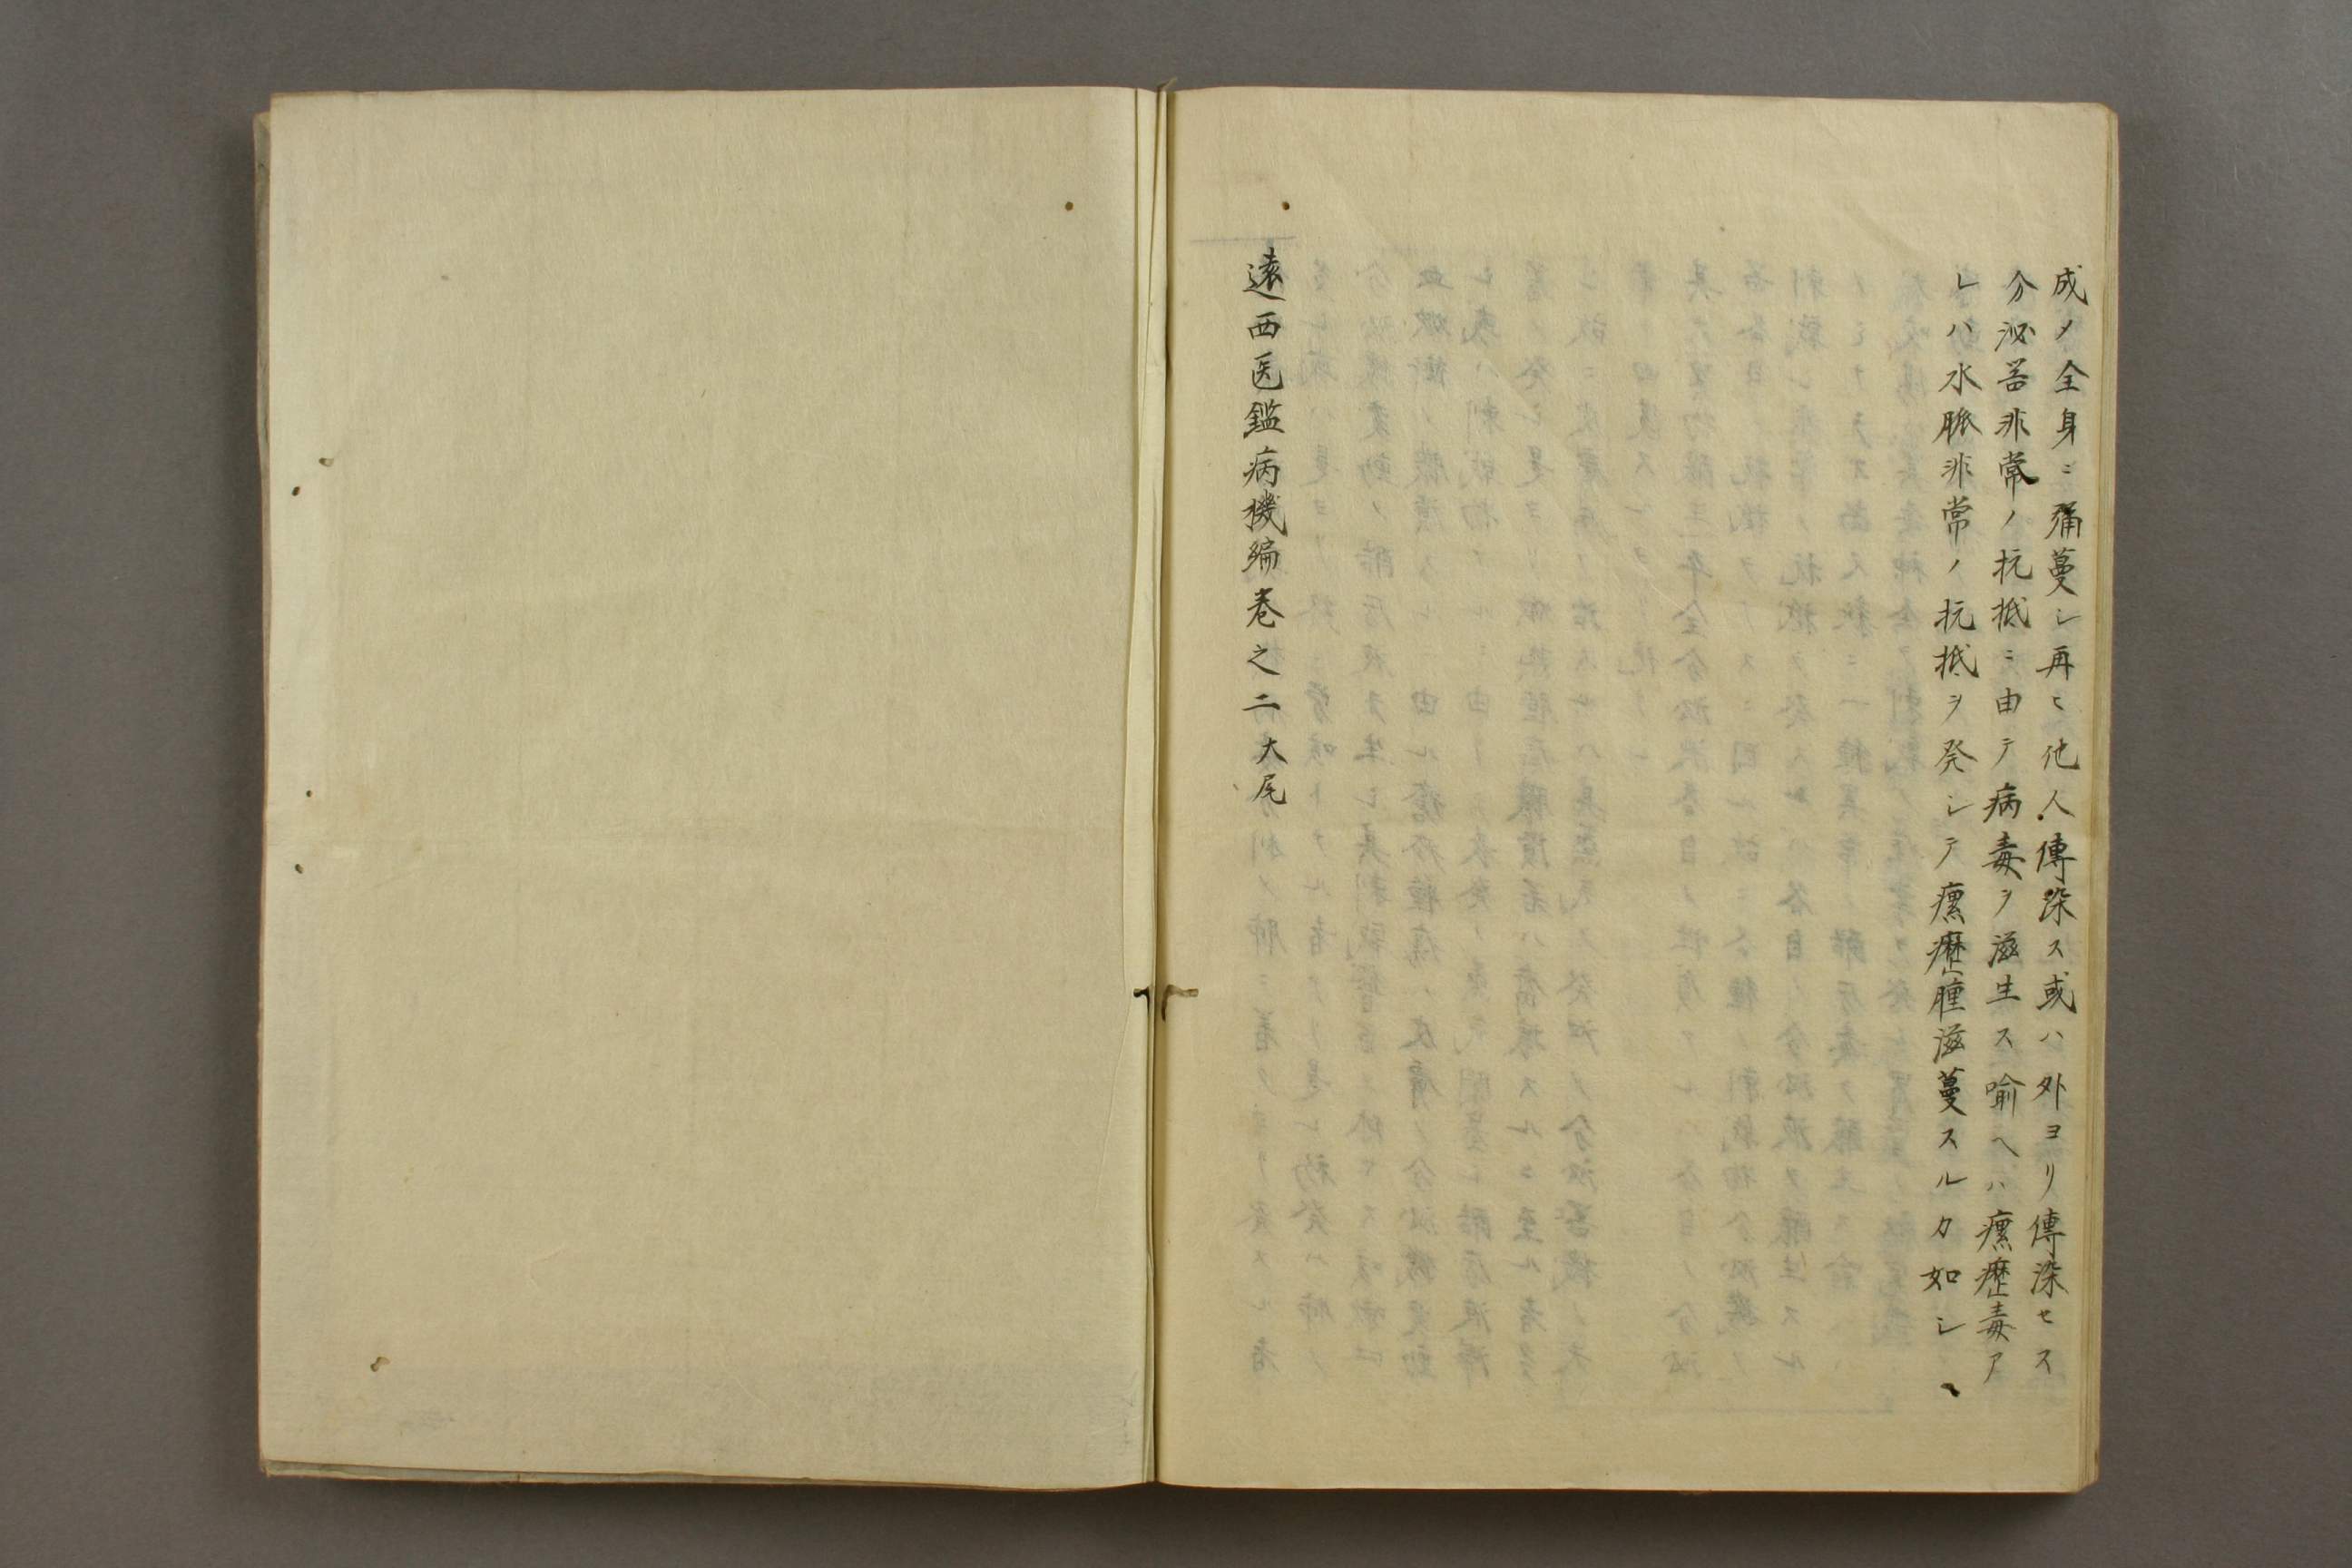 成メ全身ニ蔓シ再ヒ他人傳染ス或ハ外ヨリ傳染セス
分泌器非常ノ抗抵ニ由テ病毒ヲ滋生ス喻ヘハ瘰癧毒ア
レハ水脈非常ノ抗抵ヲ発シテ瘰癧腫滋蔓スルカ如シ、
遠西医鑑病機編巻之二大尾